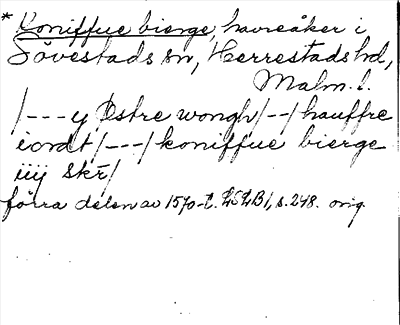 * Koniffue bierge, havreåker i
Sövestads sn, Herrestads hd,
Malm. l.
/---y Østre wongh/--/hauffre
iordt/---/koniffue bierge
iiij skr/
förra delen av 1570-t. LSLB1, s. 248. orig.